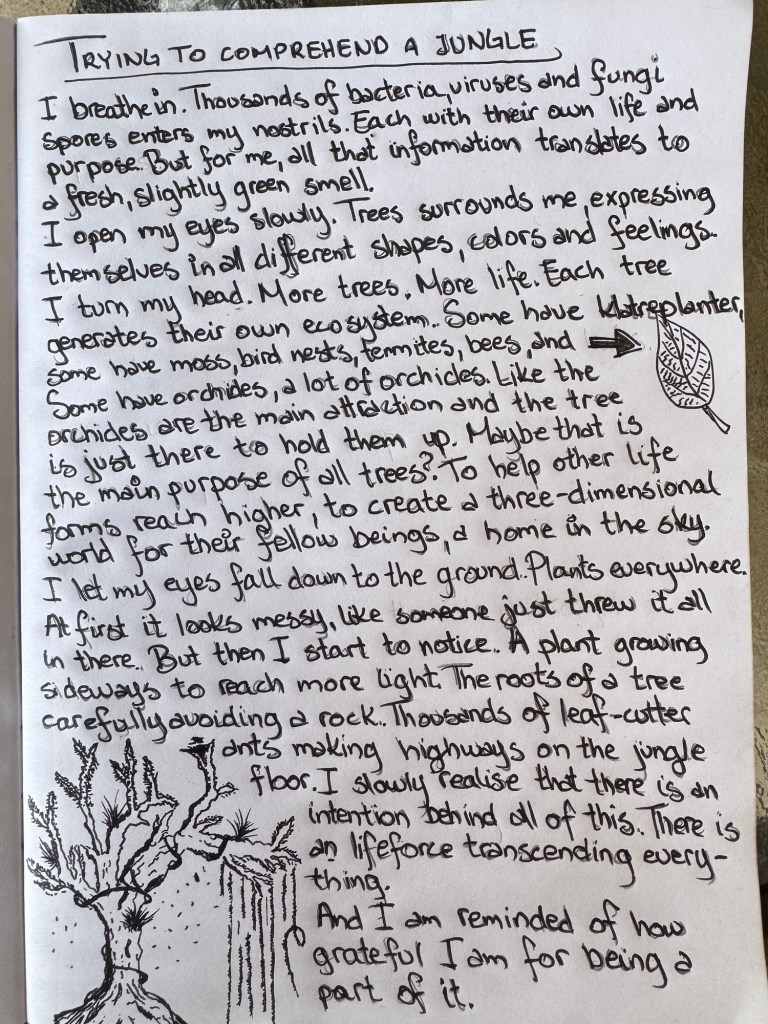 TRYING TO COMPREHEND A JUNGLE
I breathe in. Thousands of bacteria, viruses and fungi
spores enters my nostrils. Each with their own life and
purpose. But for me, all that information translates to
a fresh, slightly green smell.
I open my eyes slowly. Trees surrounds me, expressing
themselves in all different shapes, colors and feelings.
I turn my head. More trees. More life. Each tree
generates their own ecosystem. Some have klatreplanter,
some have moss, bird nests, termites, bees, and
Some have orchides, a lot of orchides. Like the
orchides are the main attraction and the tree
is just there to hold them up. Maybe that is
the main purpose of all trees? To help other life
forms reach higher, to create a three-dimensional
world for their fellow beings, a home in the sky.
I let my eyes fall down to the ground. Plants everywhere.
At first it looks messy, like someone just threw it all
in there. But then I start to notice. A plant growing
sideways to reach more light. The roots of a tree
carefully avoiding a rock. Thousands of leaf-cutter
ants making highways on the jungle
floor. I slowly realise that there is an
intention behind all of this. There is
an lifeforce transcending every-
thing.
And I am reminded of how
grateful I am for being a
part of it.